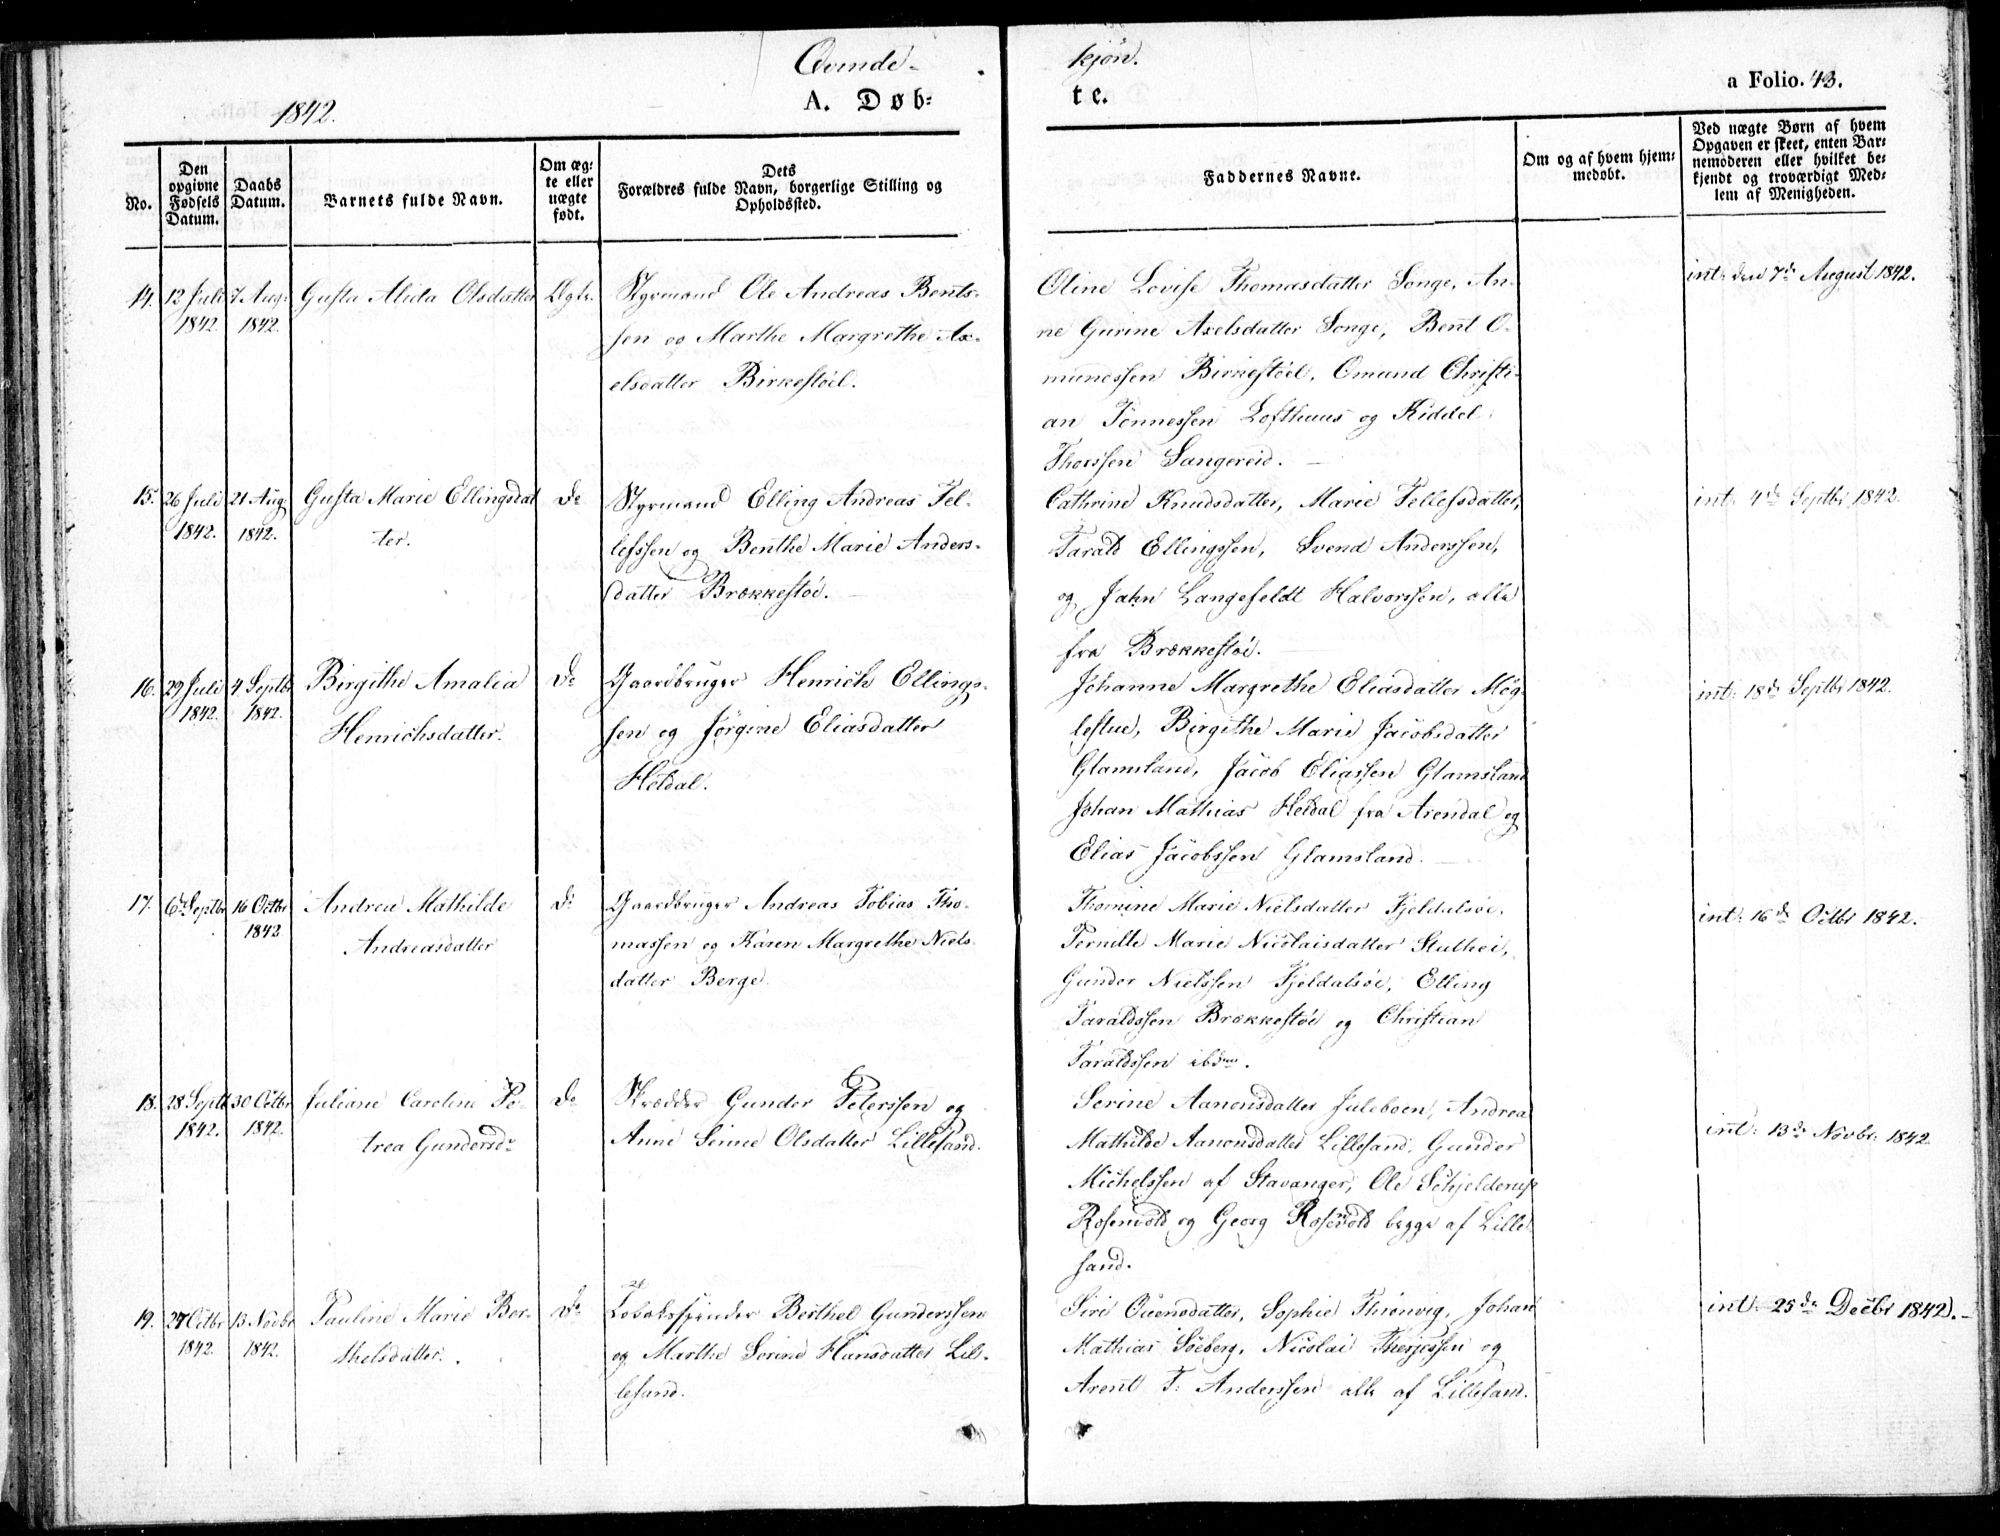 Qvinde-
kjøn.
1842.
A. Døb-
te.
a Folio. 43.
No.
Den opgivne Fødsels Datum.
Daabs Datum.
Barnets fulde Navn.
Om ægte eller nægte født.
Dets Forældres fulde Navn, borgerlige Stilling og Opholdssted.
Faddernes Navne.
Om og af hvem hjemmedøbt.
Ved nægte Børn af hvem Opgaven er skeet, enten Barnemoderen eller hvilket bekjendt og troværdigt Medlem af Menigheden.
14. 12 Juli 1842 7 Aug: 1842. Gusta Alida Olsdatter Ægte.
Styrmand Ole Andreas Bents-
sen og Marthe Margrethe Ax-
elsdatter Birkestöel.
Oline Lovise Thomasdatter Songe, An-
ne Gurine Axelsdatter Songe, Bent O-
mundssen Birkestöel, Omund Christi-
an Tönnessen Lofthuus og Kiddel
Thorssen Sangereid.
int: den 7de August 1842.
15. 26 Juli 1842. 21 Aug 1842. Gusta Marie Ellingsdat
ter.
do
Styrmand Elling Andreas Tel-
lefssen og Benthe Marie Anders-
datter Brækkestöe.
Cathrine Knudsdatter, Marie Tellefsdatter,
Tarald Ellingssen, Svend Anderssen,
og Jahn Langefeldt Halvorssen, alle
fra Brækkestöe.
int: 4de Septbr 1842.
16. 29 Juli 1842. 4 Septbr 1842. Birgithe Amalia
Henrichsdatter.
do
Gaardbruger Henrich Ellings-
sen og Jørgine Eliasdatter
Heldal.
Johanne Margrethe Eliasdatter Møg-
lestue, Birgithe Marie Jacobsdatter
Glamsland, Jacob Eliassen Glamsland
Johan Mathias Heldal fra Arendal og
Elias Jacobssen Glamsland.
int: 18de Septbr 1842.
17. 6de Septbr 16 Octbr 1842 Andrea Mathilde
Andreasdatter
do
Gaardbruger Andreas Tobias Tho-
massen og Karen Margrethe Niels-
datter Berge.
Thomine Marie Nielsdatter Fjeldalsöe,
Pernille Marie Nicolaisdatter Stulhei,
Gunder Nielssen Fjeldalsöe, Elling
Taraldssen Brækkestöe og Christian
Taraldssen ibdm.
int: 16de Octbr 1842.
18. 28 Septb 1842. 30 Octbr 1842. Juliane Caroline Pe-
trea Gundersdr
do
Skrædder Gunder Peterssen og
Anne Sinne Olsdatter Lillesand.
Serine Aanonsdatter Juleboen, Andrea
Mathilde Aanonsdatter Lillesand, Gunder
Michelssen af Stavanger, Ole Schjelderup
Rosenvold og Georg Rosenvold begge af Lille-
sand.
int: 13de Novbr: 1842.
19. 27 Octbr 1842. 13 Novbr 1842. Pauline Marie Ber-
thelsdatter.
do
Tobaksspinder Berthel Gunderssen
og Marthe Serine Hansdatter Lil-
lesand.
Siri Ouensdatter, Sophie Thrönveg, Johan
Mathias Söeberg, Nicolai Therjessen og
Arent T: Anderssen alle af Lillesand.
int: 25de Decbr 1842.